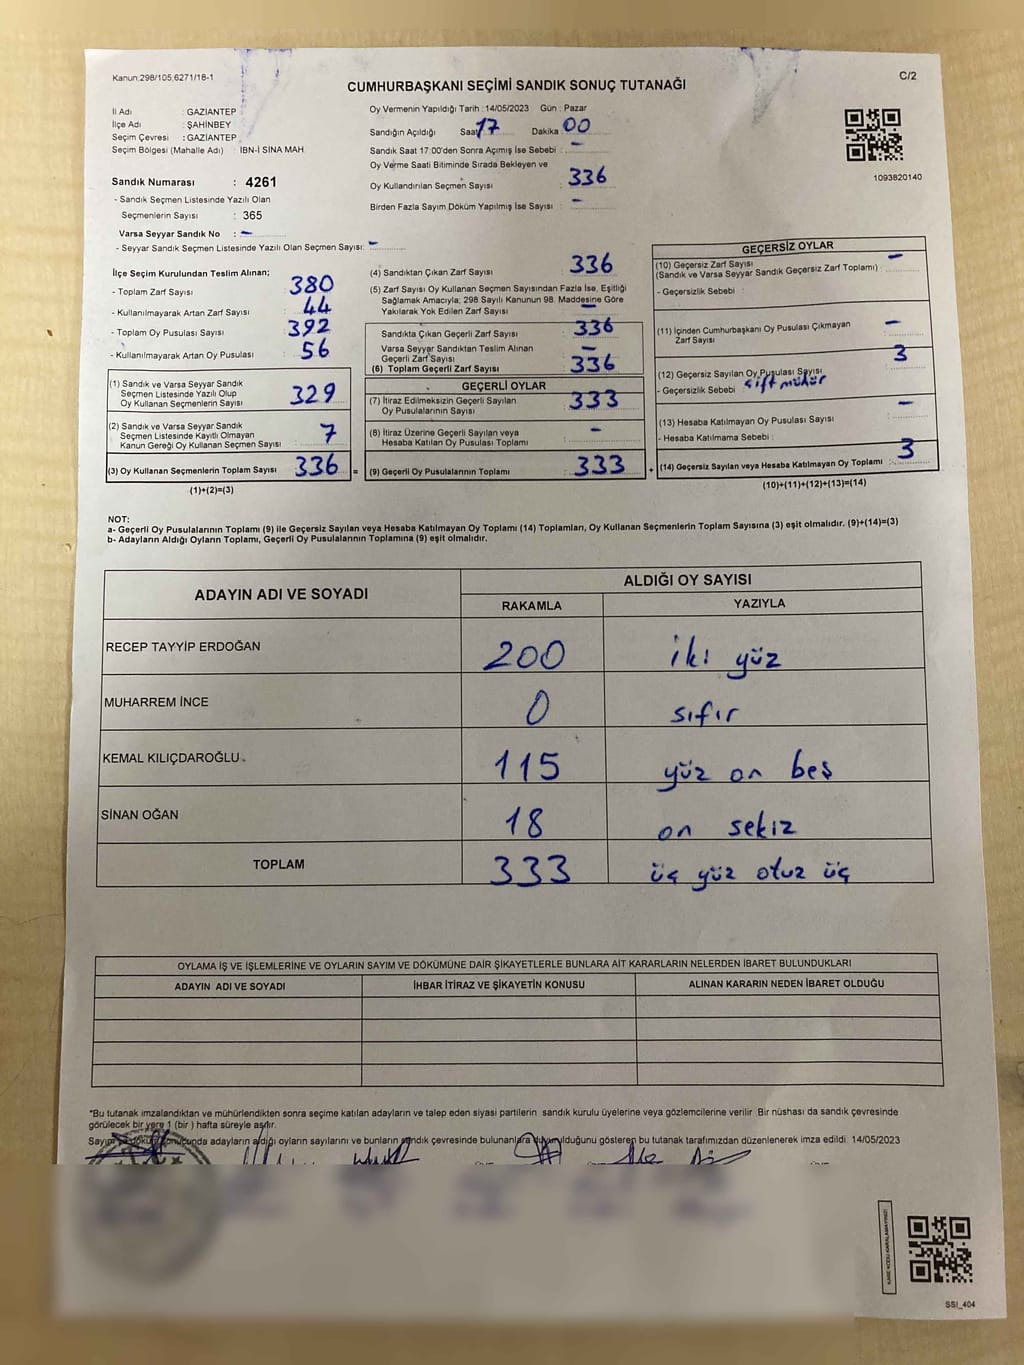 Kanun;298/105;6271/18-1
C/2
CUMHURBAŞKANI SEÇİMİ SANDIK SONUÇ TUTANAĞI
İl Adı : GAZIANTEP
İlçe Adı : ŞAHİNBEY
Seçim Çevresi : GAZIANTEP
Seçim Bölgesi (Mahalle Adı) : İBN-İ SİNA MAH.
Sandık Numarası : 4261
- Sandık Seçmen Listesinde Yazılı Olan
Seçmenlerin Sayısı : 365
Varsa Seyyar Sandık No : -
- Seyyar Sandık Seçmen Listesinde Yazılı Olan Seçmen Sayısı: -
Oy Vermenin Yapıldığı Tarih : 14/05/2023 Gün : Pazar
Sandığın Açıldığı Saat 17 Dakika 00
Sandık Saat 17:00'den Sonra Açımış İse Sebebi : -
Oy Verme Saati Bitiminde Sırada Bekleyen ve
Oy Kullandırılan Seçmen Sayısı : 336
Birden Fazla Sayım Döküm Yapılmış İse Sayısı : -
1093820140
İlçe Seçim Kurulundan Teslim Alınan;
- Toplam Zarf Sayısı : 380
- Kullanılmayarak Artan Zarf Sayısı : 44
- Toplam Oy Pusulası Sayısı : 392
- Kullanılmayarak Artan Oy Pusulası : 56
(1) Sandık ve Varsa Seyyar Sandık
Seçmen Listesinde Yazılı Olup
Oy Kullanan Seçmenlerin Sayısı : 329
(2) Sandık ve Varsa Seyyar Sandık
Seçmen Listesinde Kayıtlı Olmayan
Kanun Gereği Oy Kullanan Seçmen Sayısı : 7
(3) Oy Kullanan Seçmenlerin Toplam Sayısı : 336 =
(1)+(2)=(3)
(4) Sandıktan Çıkan Zarf Sayısı : 336
(5) Zarf Sayısı Oy Kullanan Seçmen Sayısından Fazla İse, Eşitliği
Sağlamak Amacıyla; 298 Sayılı Kanunun 98. Maddesine Göre
Yakılarak Yok Edilen Zarf Sayısı : -
Sandıkta Çıkan Geçerli Zarf Sayısı : 336
Varsa Seyyar Sandıktan Teslim Alınan
Geçerli Zarf Sayısı : -
(6) Toplam Geçerli Zarf Sayısı : 336
GEÇERLİ OYLAR
(7) İtiraz Edilmeksizin Geçerli Sayılan
Oy Pusulalarının Sayısı : 333
(8) İtiraz Üzerine Geçerli Sayılan veya
Hesaba Katılan Oy Pusulası Toplamı : -
(9) Geçerli Oy Pusulalarının Toplamı : 333 +
GEÇERSİZ OYLAR
(10) Geçersiz Zarf Sayısı
(Sandık ve Varsa Seyyar Sandık Geçersiz Zarf Toplamı) : -
- Geçersizlik Sebebi :
(11) İçinden Cumhurbaşkanı Oy Pusulası Çıkmayan
Zarf Sayısı : -
(12) Geçersiz Sayılan Oy Pusulası Sayısı : 3
- Geçersizlik Sebebi : çift mühür
(13) Hesaba Katılmayan Oy Pusulası Sayısı : -
- Hesaba Katılmama Sebebi :
(14) Geçersiz Sayılan veya Hesaba Katılmayan Oy Toplamı : 3
(10)+(11)+(12)+(13)=(14)
NOT:
a- Geçerli Oy Pusulalarının Toplamı (9) ile Geçersiz Sayılan veya Hesaba Katılmayan Oy Toplamı (14) Toplamları, Oy Kullanan Seçmenlerin Toplam Sayısına (3) eşit olmalıdır. (9)+(14)=(3)
b- Adayların Aldığı Oyların Toplamı, Geçerli Oy Pusulalarının Toplamına (9) eşit olmalıdır.
ADAYIN ADI VE SOYADI ALDIĞI OY SAYISI
RAKAMLA YAZIYLA
RECEP TAYYİP ERDOĞAN 200 iki yüz
MUHARREM İNCE 0 sıfır
KEMAL KILIÇDAROĞLU 115 yüz on beş
SİNAN OĞAN 18 on sekiz
TOPLAM 333 üç yüz otuz üç
OYLAMA İŞ VE İŞLEMLERİNE VE OYLARIN SAYIM VE DÖKÜMÜNE DAİR ŞİKAYETLERLE BUNLARA AİT KARARLARIN NELERDEN İBARET BULUNDUKLARI
ADAYIN ADI VE SOYADI İHBAR İTİRAZ VE ŞİKAYETİN KONUSU ALINAN KARARIN NEDEN İBARET OLDUĞU
*Bu tutanak imzalandıktan ve mühürlendikten sonra seçime katılan adayların ve talep eden siyasi partilerin sandık kurulu üyelerine veya gözlemcilerine verilir. Bir nüshası da sandık çevresinde
görülecek bir yere 1 (bir ) hafta süreyle asılır.
Sayım ve döküm sonucunda adayların aldığı oyların sayılarını ve bunların sandık çevresinde bulunanlara duyurulduğunu gösteren bu tutanak tarafımızdan düzenlenerek imza edildi. 14/05/2023
KARE KODU KARALAMAYINIZ!
SSI_404